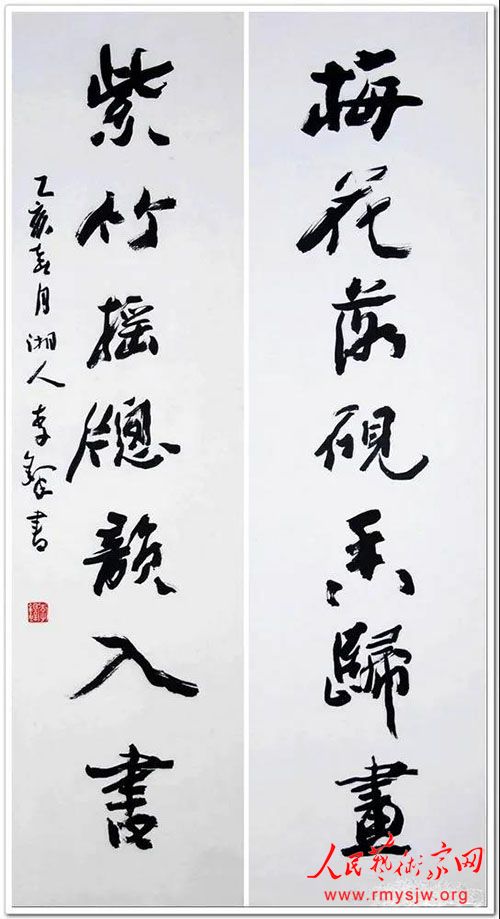 梅花落硯香歸畫
紫竹搖牕韻入書
乙亥春月湘人李鐸書
人民藝術家网
www.rmysjw.org